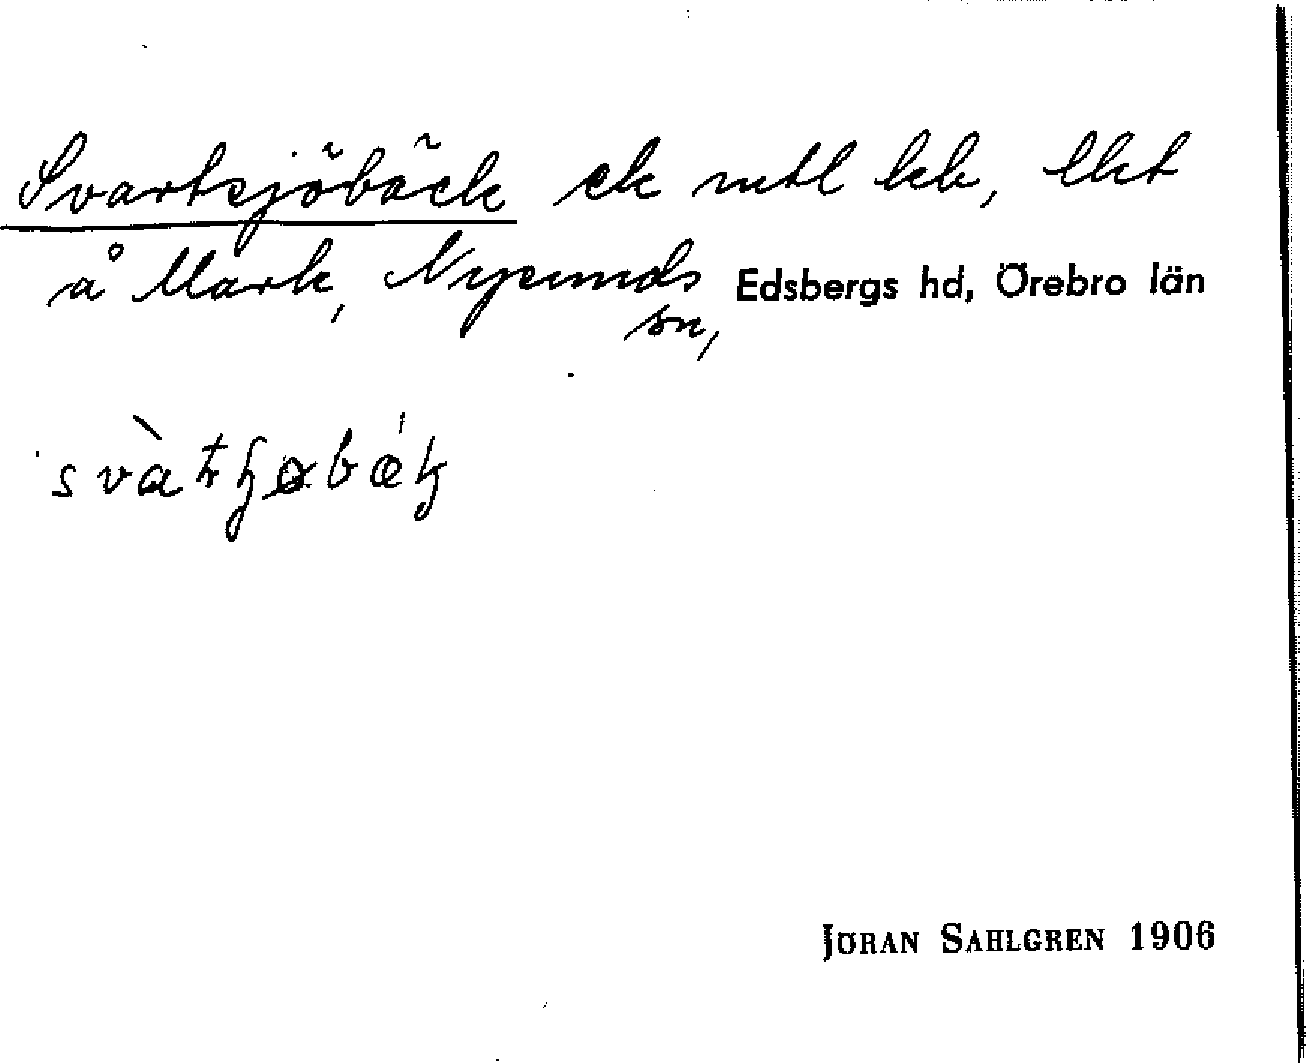 Svartsjöbäck ek mtl kb, lht
å Mark, Nysunds Edsbergs hd, Örebro län
sn,
JÖRAN SAHLGREN 1906